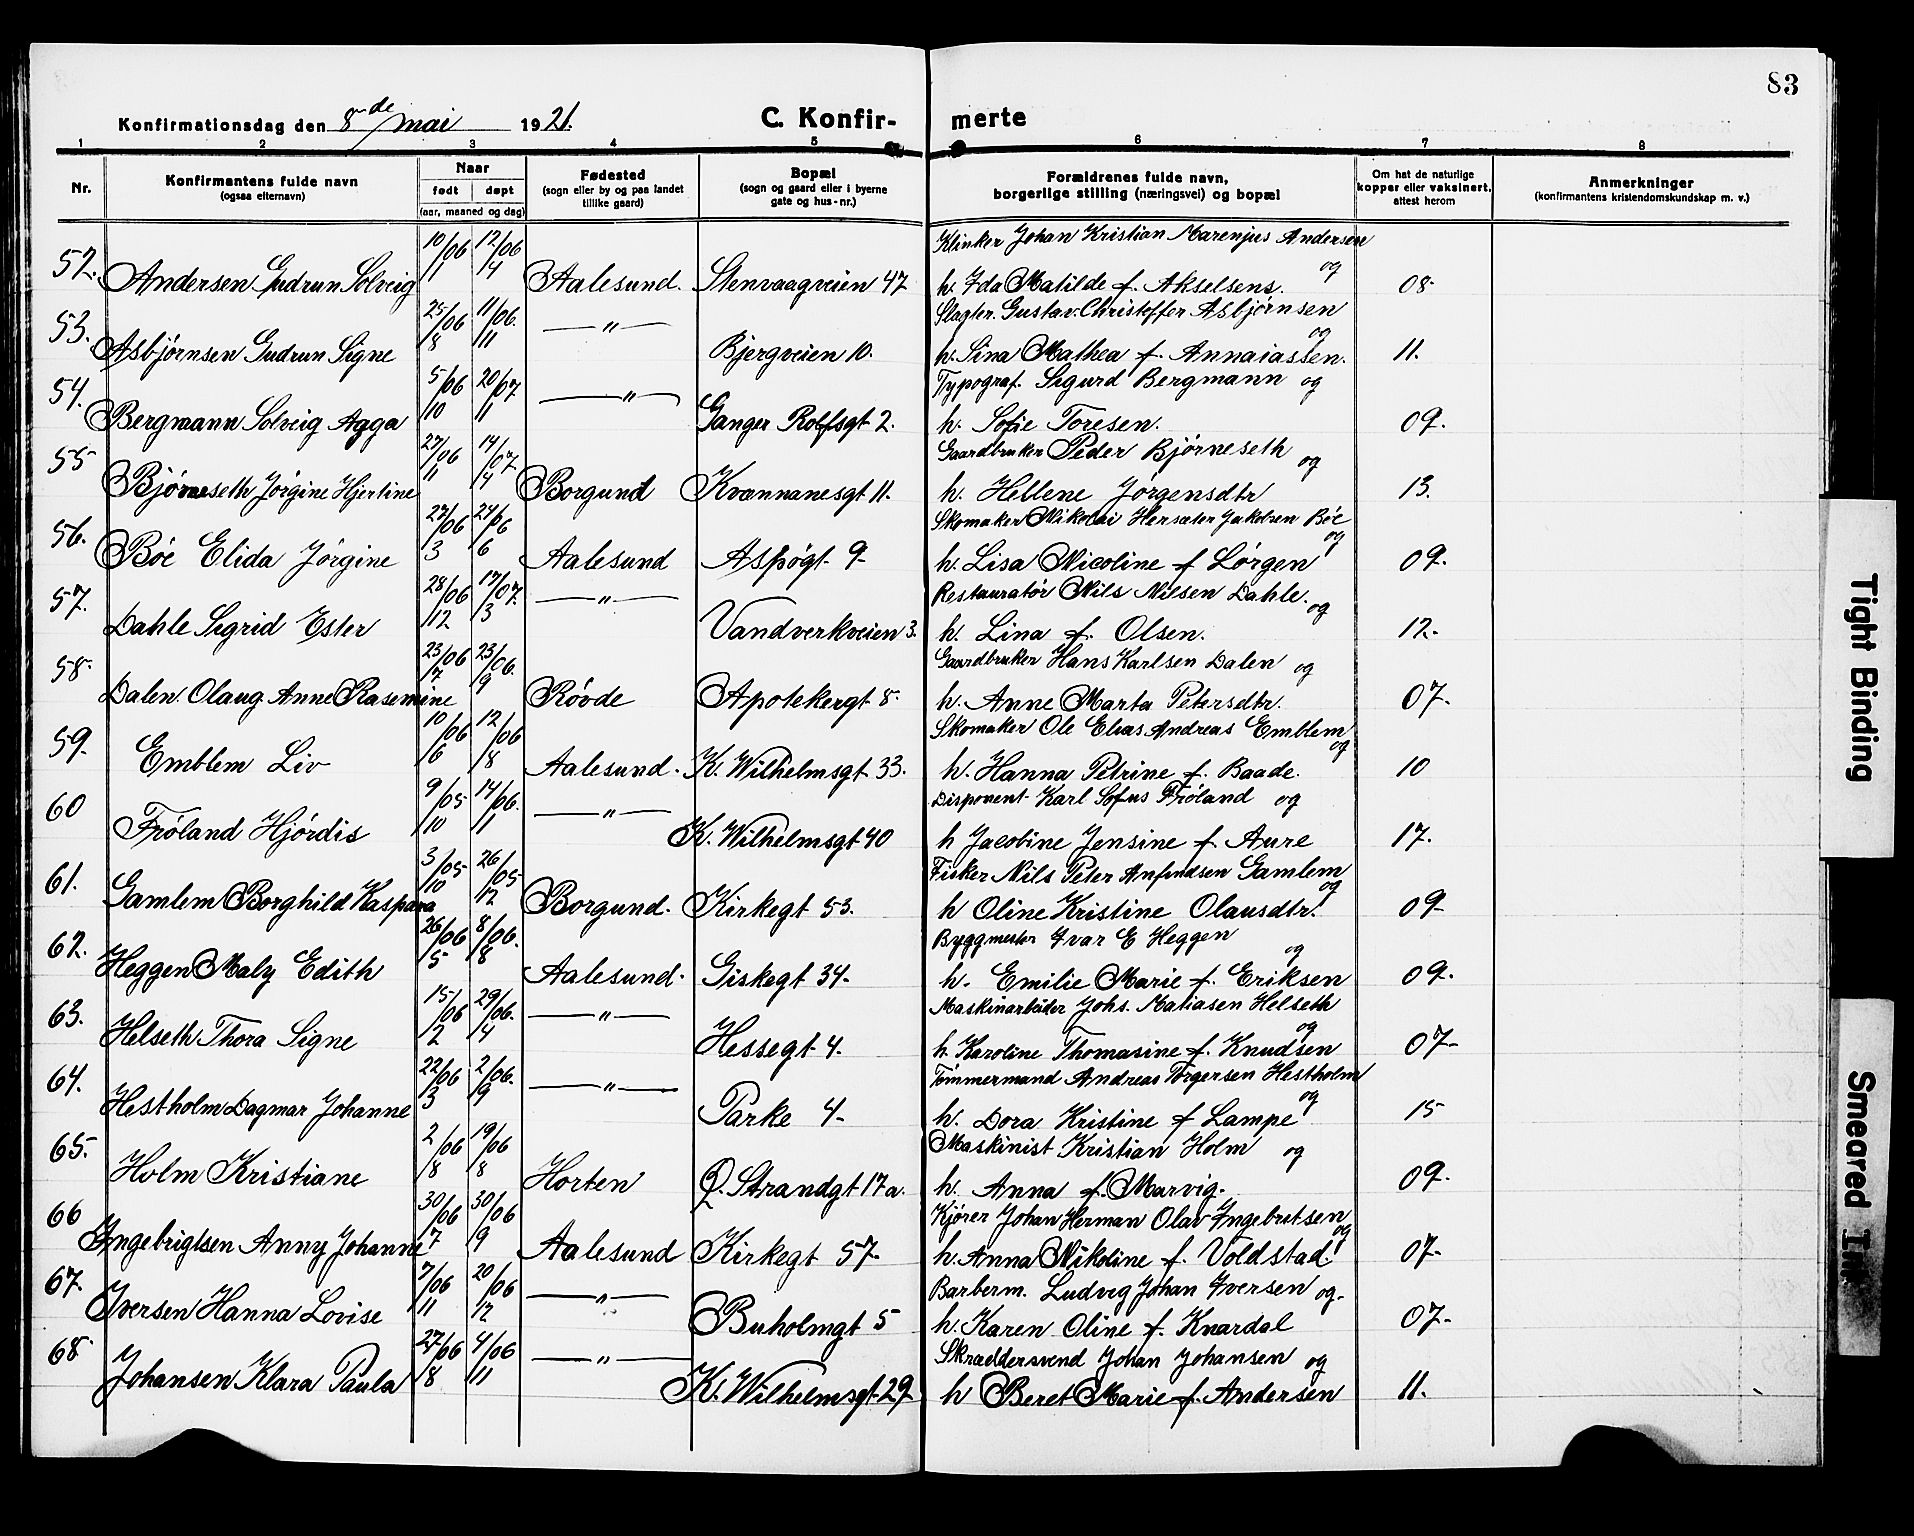 83
Konfirmationsdag den 8de mai 1921.
C. Konfirmerte
1 2 3 4 5 6 7 8
Nr.
Konfirmantens fulde navn
(ogsaa elternavn)
Naar
født døpt
(aar, maaned og dag)
Fødested
(sogn eller by og paa landet
tillike gaard)
Bopæl
(sogn og gaard eller i byerne
gate og hus-nr.)
Forældrenes fulde navn,
borgerlige stilling (næringsvei) og bopæl
Om hat de naturlige
kopper eller vaksinert.
attest herom
Anmerkninger
(konfirmantens kristendomskundskap m. v.)
52. Andersen Gudrun Solveig 10/1 06 12/4 06 Aalesund. Stenvaagveien 47
Klinker Johan Kristian Marenjus Andersen og
h. Ida Matilde f. Akselsens. 08-
53. Asbjørnsen Gudrun Signe 25/8 06 11/11 06. —"— Bjergveien 10.
Slagter. Gustav. Christoffer Asbjørnsen og
h. Sina Mathea f. Annaiassen. 11.
54. Bergmann Solveig Agga 5/10 06 20/11 07 —"— Ganger Rolfsgt 2.
Typograf. Sigurd Bergmann og
h. Sofie Toresen. 09.
55 Bjørneseth Jørgine Hjertine 27/11 06 14/4 07. Borgund Kvannanesgt 11.
Gaardbruker Peder Bjørneseth og
h. Hellene Jørgensdtr 13.
56. Bøe Elida Jørgine 27/3 06 24/6 06 Aalesund Aspøgt 9-
Skomaker Nikolai Hersæter Jakobsen Bøe og
h. Lisa Nicoline f Lørgen 09.
57. Dahle Sigrid Ester 28/12 06 17/3 07. —"— Vandverkveien 3.
Restauratør Nils Nilsen Dahle. og
h. Lina f. Olsen. 12.
58. Dalen. Olaug Anne Rasemine 23/7 06 23/9 06. Røvde Apotekergt 8.
Gaardbruker Hans Karlsen Dalen og
h. Anne Marta Petersdtr. 07-
59. Emblem Liv 10/6 06 12/8 06 Aalesund. K. Wilhelmsgt 33.
Skomaker Ole Elias Andreas Emblem og
h. Hanna Petrine f. Baade. 10
60 Frøland Hjørdis 9/10 05 14/11 06. —"— K. Wilhelmsgt 40
Disponent Karl Sofus Frøland og
h Jacobine Jensine f. Aure 17.
61. Gamlem Borghild Kaspara 3/10 05 26/12 05 Borgund. Kirkegt 53.
Fisker Nils Peter Anfindsen Gamlem og
h Oline Kristine Olausdtr. 09-
62. Heggen Maly Edith 26/5 06 8/8 06. Aalesund. Giskegt 34-
Byggmester Ivar E Heggen og
h. Emilie Marie f. Eriksen 09.
63. Helseth Thora Signe 15/2 06 29/4 06. —"— Hessegt 4.
Maskinarbeider Johs. Matiasen Helseth og
h. Karoline Thomasine f. Knudsen 07-
64. Hestholm Dagmar Johanne 22/3 06 2/9 06. —"— Parke 4-
Tømmermand Andreas Torgersen Hestholm og
h. Dora Kristine f Lampe 15
65. Holm Kristiane 2/8 06 19/8 06 Horten Q. Strandgt 17a.
Maskinist Kristian Holm og
h. Anna f. Marvig. 09.
66 Ingebrigtsen Anny Johanne 30/7 06 30/9 06 Aalesund Kirkegt 57-
Kjører Johan Herman Olav Ingebretsen og
h. Anna Nikoline f. Voldstad. 07-
67. Iversen Hanna Lovise 7/11 06 20/12 06 —"— Buholmgt 5
Barberm. Ludvig Johan Iversen og.
h. Karen Oline f. Knardal 07-
68 Johansen Klara Paula 27/8 06 4/11 06 —"— K. Wilhelmsgt 29
Skræddersvend Johan Johansen og
h Beret Marie f. Andersen 11.
Tight Binding
Smeared Ink